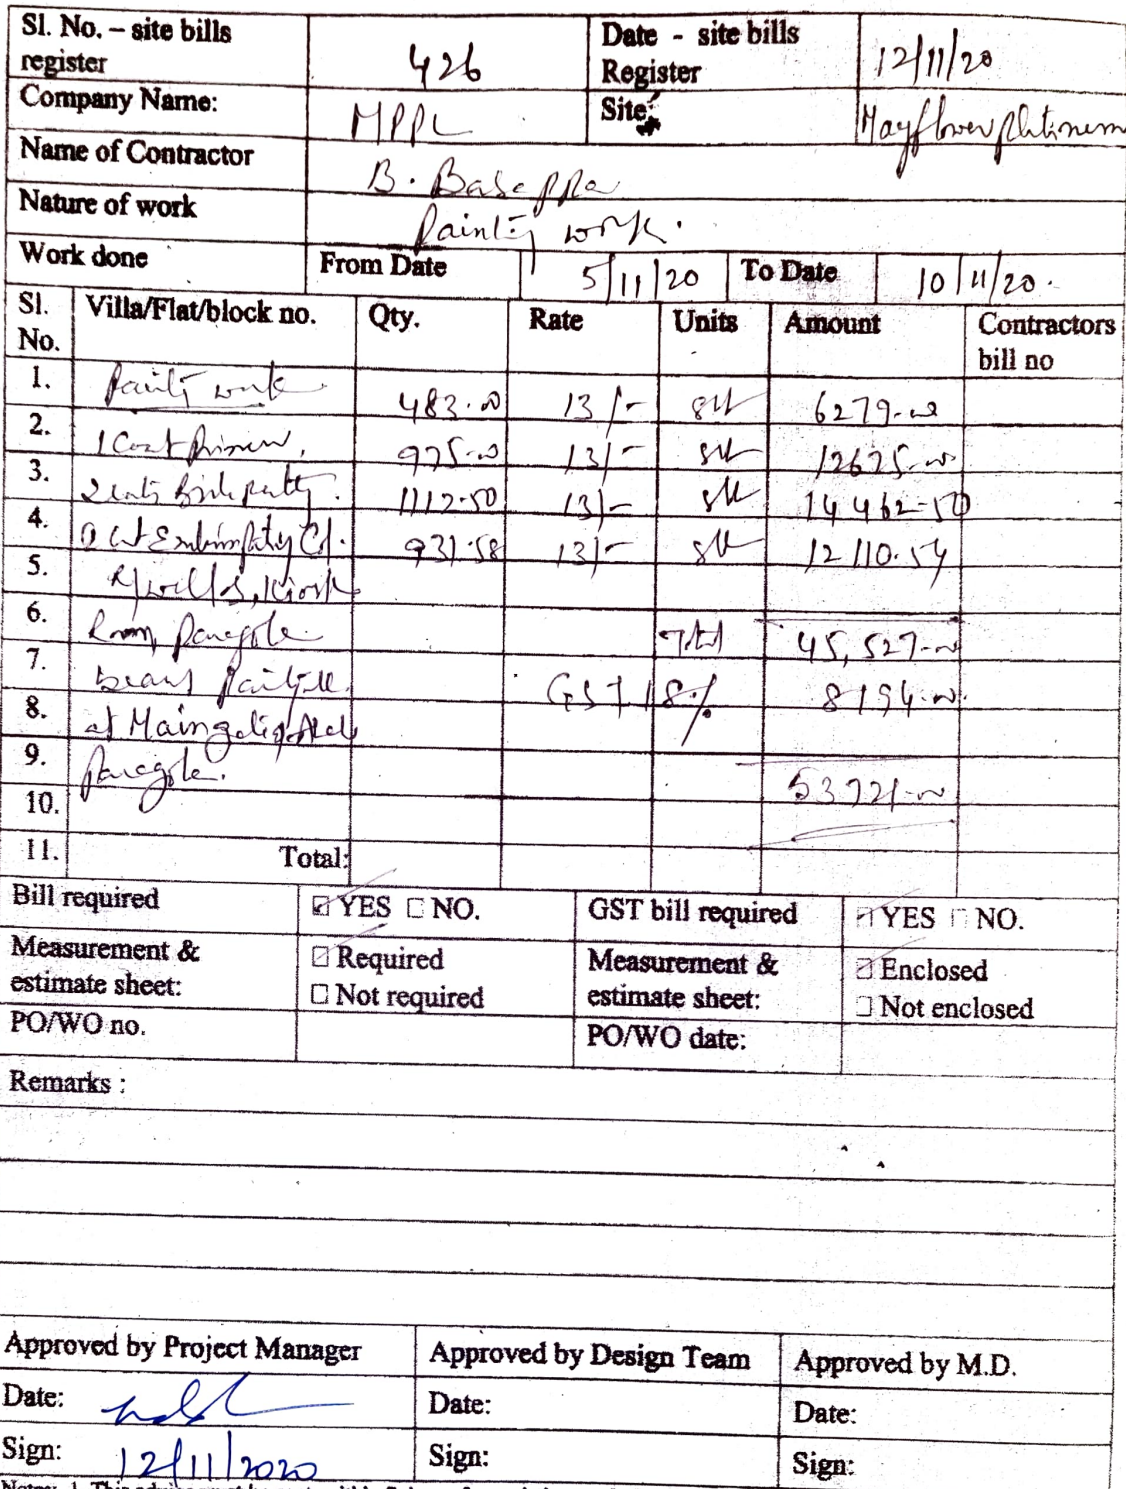 Sl. No. – site bills register 426 Date - site bills Register 12/11/20
Company Name: MPPL Site: Mayflower platinem
Name of Contractor B. Basappa
Nature of work Painting work.
Work done From Date 5/11/20 To Date 10/11/20.
Sl. No. Villa/Flat/block no. Qty. Rate Units Amount Contractors bill no
1. work 483.00 13/- sft 6279.00
2. 1 Coat 975.00 13/- sft 12675.00
3. 1112.50 13/- sft 14462.50
4. 931.58 13/- sft 12110.54
5.
6. Room Total 45,527.00
7. GST 18% 8194.00
8. at Main
9.
10. 53721.00
11. Total:
Bill required YES NO. GST bill required YES NO.
Measurement & estimate sheet: Required Measurement & estimate sheet: Enclosed
Not required Not enclosed
PO/WO no. PO/WO date:
Remarks :
Approved by Project Manager Approved by Design Team Approved by M.D.
Date: Date: Date:
Sign: 12/11/2020 Sign: Sign: